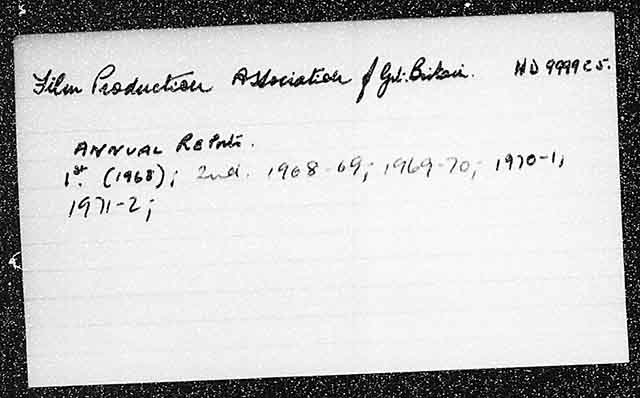 Film Production Association of Gt. Britain. HD 9999 C5.
ANNUAL REPorts.
1st. (1968); 2nd. 1968-69; 1969-70; 1970-1;
1971-2;